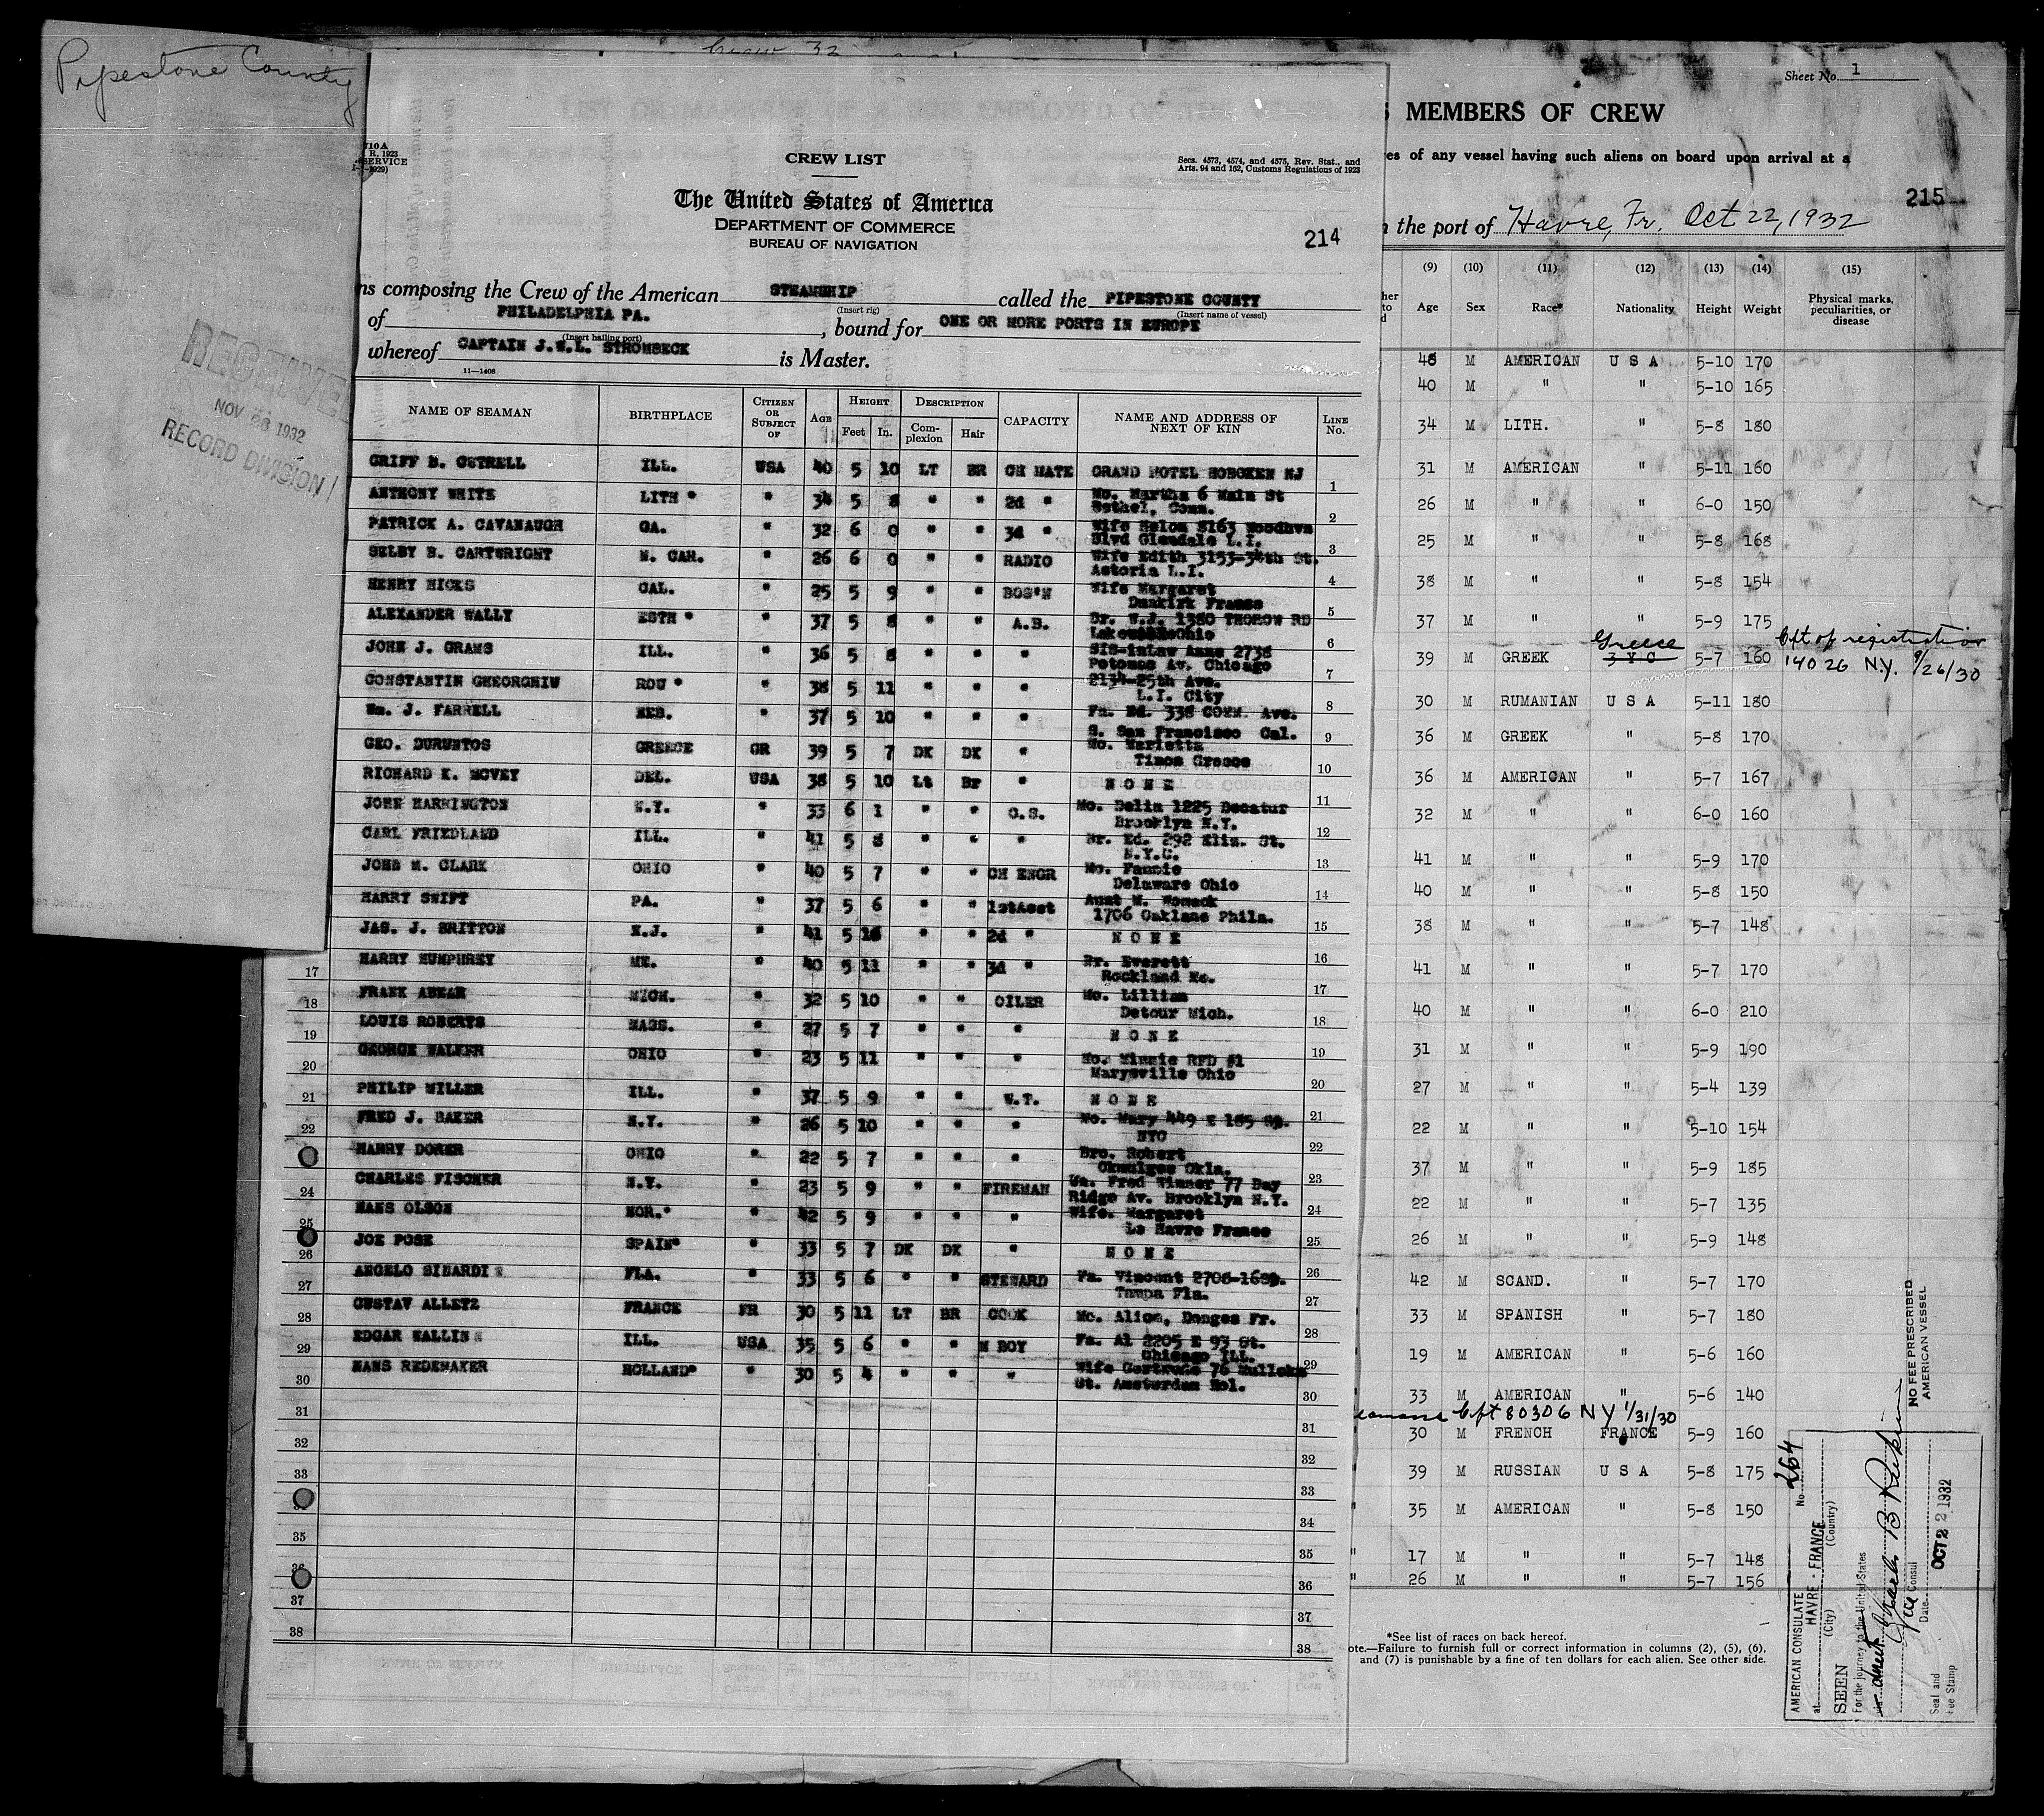 Pipestone County
RECEIVED
NOV 26 1932
RECORD DIVISION
710A
R. 1923
SERVICE
1929)
CREW LIST
Secs. 4573, 4574, and 4575, Rev. Stat., and
Arts. 94 and 162, Customs Regulations of 1923
The United States of America
DEPARTMENT OF COMMERCE
BUREAU OF NAVIGATION
214
ns composing the Crew of the American STEAMSHIP called the PIPESTONE COUNTY
(Insert rig) (Insert name of vessel)
of PHILADELPHIA PA., bound for ONE OR MORE PORTS IN EUROPE
(Insert hailing port)
whereof CAPTAIN J.W.L. STROMBECK is Master.
11—1408
NAME OF SEAMAN BIRTHPLACE CITIZEN OR SUBJECT OF AGE HEIGHT Feet In. DESCRIPTION Complexion Hair CAPACITY NAME AND ADDRESS OF NEXT OF KIN LINE No.
GRIFF B. COTRELL ILL. USA 40 5 10 LT BR CH MATE GRAND HOTEL HOBOKEN NJ 1
ANTHONY WHITE LITH * " 34 5 8 " " 2d " Mo. Martha 6 Main St Bethel, Conn. 2
PATRICK A. CAVANAUGH GA. " 32 6 0 " " 3d " Wife Helen 8163 Woodhvn Blvd Glendale L.I. 3
SELBY B. CARTWRIGHT N. CAR. " 26 6 0 " " RADIO Wife Edith 3153-34th St. Astoria L.I. 4
HENRY HICKS CAL. " 25 5 9 " " BOS'N Wife Margaret Dunkirk France 5
ALEXANDER WALLY ESTH * " 37 5 8 " " A.B. Br. W.J. 1380 THOROW RD Ohio 6
JOHN J. GRAMS ILL. " 36 5 8 " " " SIS-inLaw Anne 2738 Potomac Av. Chicago 7
CONSTANTIN GHEORGHIU ROU * " 38 5 11 " " " 2134-25th Ave. L.I. City 8
Wm. J. FARRELL NEB. " 37 5 10 " " " Fa. Ed. 338 COMM. Ave. S. San Francisco Cal. 9
GEO. DURUNTOS GREECE GR 39 5 7 DK DK " Mo. Marietta Tinos Greece 10
RICHARD K. MCVEY DEL. USA 38 5 10 Lt Br " N O N E 11
JOHN HARRINGTON N.Y. " 33 6 1 " " O.S. Mo. Delia 1225 Decatur Brooklyn N.Y. 12
CARL FRIEDLAND ILL. " 41 5 8 " " " Br. Ed. 292 Eliz. St. N.Y.C. 13
JOHN M. CLARK OHIO " 40 5 7 " " CH ENGR Mo. Fannie Delaware Ohio 14
HARRY SWIFT PA. " 37 5 6 " " 1stAsst Aunt M. Womack 1706 Oaklane Phila. 15
JAS. J. BRITTON N.J. " 41 5 " " 2d " N O N E 16
17 HARRY HUMPHREY ME. " 40 5 11 " " 3d " Br. Everett Rockland Me. 17
18 FRANK MICH. " 32 5 10 " " OILER Mo. Lillian Detour Mich. 18
19 LOUIS ROBERTS MASS. " 27 5 7 " " " N O N E 19
20 GEORGE WALKER OHIO " 23 5 11 " " " Mo. Minnie RFD #1 Marysville Ohio 20
21 PHILIP MILLER ILL. " 37 5 9 " " W.T. N O N E 21
22 FRED J. BAKER N.Y. " 26 5 10 " " " Mo. Mary 449 E 185 St. NYC 22
HARRY DORER OHIO " 22 5 7 " " " Bro. Robert Okmulgee Okla. 23
24 CHARLES FISCHER N.Y. " 23 5 9 " " FIREMAN Fred Winner 77 Bay Ridge Av. Brooklyn N.Y. 24
25 HANS OLSON NOR.* " 42 5 9 " " " Wife. Margaret Le Havre France 25
26 JOE POSE SPAIN* " 33 5 7 DK DK " N O N E 26
27 ANGELO SINARDI FLA. " 33 5 6 " " STEWARD Fa. Vincent Tampa Fla. 27
28 GUSTAV ALLETZ FRANCE FR 30 5 11 LT BR COOK Mo. Alice, Donges Fr. 28
29 EDGAR WALLIN ILL. USA 35 5 6 " " M BOY Fa. Al 2205 E 93 St. Chicago ILL. 29
30 HANS REDEMAKER HOLLAND* " 30 5 4 " " " Wife Gertrude 76 St. Amsterdam Hol. 30
31 31
32 32
33 33
34
35 35
36 36
37 37
38 38
Sheet No. 1
S MEMBERS OF CREW
es of any vessel having such aliens on board upon arrival at a
215
the port of Havre, Fr. Oct 22, 1932
(9) (10) (11) (12) (13) (14) (15)
Age Sex Race* Nationality Height Weight Physical marks, peculiarities, or disease
48 M AMERICAN U S A 5-10 170
40 M " " 5-10 165
34 M LITH. " 5-8 180
31 M AMERICAN " 5-11 160
26 M " " 6-0 150
25 M " " 5-8 168
38 M " " 5-8 154
37 M " " 5-9 175
39 M GREEK Greece 5-7 160 Cft of registration 14026 N.Y. 9/26/30
30 M RUMANIAN U S A 5-11 180
36 M GREEK " 5-8 170
36 M AMERICAN " 5-7 167
32 M " " 6-0 160
41 M " " 5-9 170
40 M " " 5-8 150
38 M " " 5-7 148
41 M " " 5-7 170
40 M " " 6-0 210
31 M " " 5-9 190
27 M " " 5-4 139
22 M " " 5-10 154
37 M " " 5-9 185
22 M " " 5-7 135
26 M " " 5-9 148
42 M SCAND. " 5-7 170
33 M SPANISH " 5-7 180
19 M AMERICAN " 5-6 160
33 M AMERICAN " 5-6 140
eamans Cft 80306 NY 1/31/30
30 M FRENCH FRANCE 5-9 160
39 M RUSSIAN U S A 5-8 175
35 M AMERICAN " 5-8 150
" 17 M " " 5-7 148
" 26 M " " 5-7 156
*See list of races on back hereof.
ote.—Failure to furnish full or correct information in columns (2), (5), (6),
and (7) is punishable by a fine of ten dollars for each alien. See other side.
NO FEE PRESCRIBED
AMERICAN VESSEL
AMERICAN CONSULATE No. 264
at HAVRE - FRANCE
(City) (Country)
SEEN
For the journey to the United States
Vice Consul
Date OCT 22 1932
Seal and
Fee Stamp